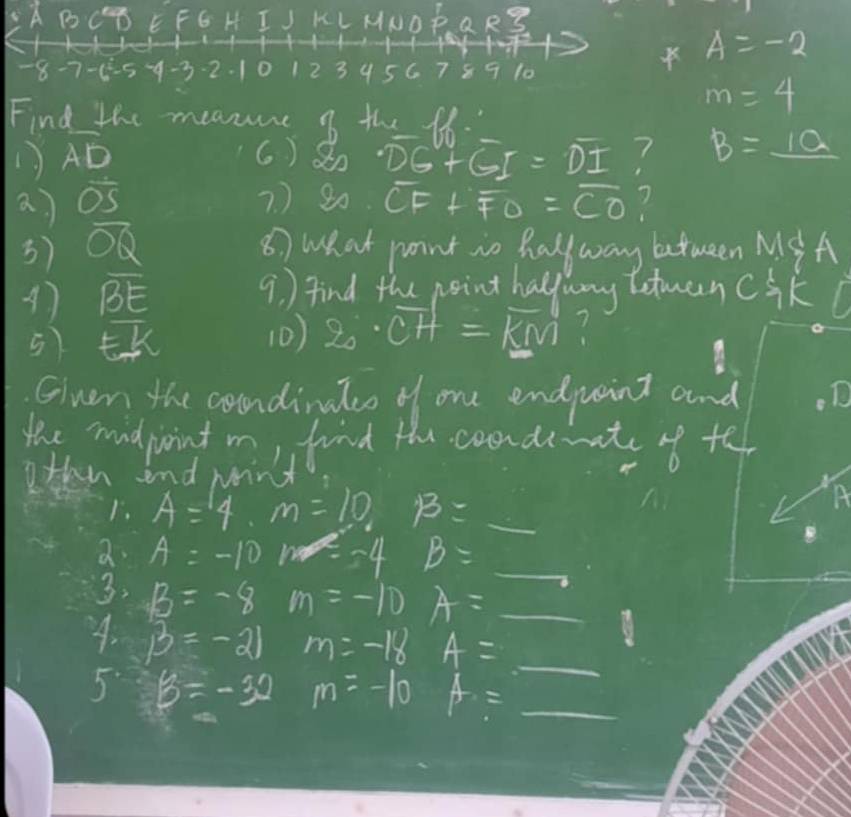 A B C D E F G H I J K L M N O P Q R S
-8 -7 -6 -5 -4 -3 -2 -1 0 1 2 3 4 5 6 7 8 9 10
* A = -2
m = 4
B = 10
Find the measure of the ff:
1.) A̅D̅
2.) O̅S̅
3) O̅Q̅
4) B̅E̅
5) E̅K̅
6.) Is D̅G̅ + G̅I̅ = D̅I̅ ?
7.) Is C̅F̅ + F̅O̅ = C̅O̅ ?
8.) What point is halfway between M & A
9.) Find the point halfway between C & K
10) Is C̅H̅ = K̅M̅ ?
Given the coordinates of one endpoint and
the midpoint m, find the coordinate of the
other end point.
1. A = 4 m = 10 B = __
2. A = -10 m = -4 B = __
3. B = -8 m = -10 A = __
4. B = -21 m = -18 A = __
5. B = -32 m = -10 A = __
D
A